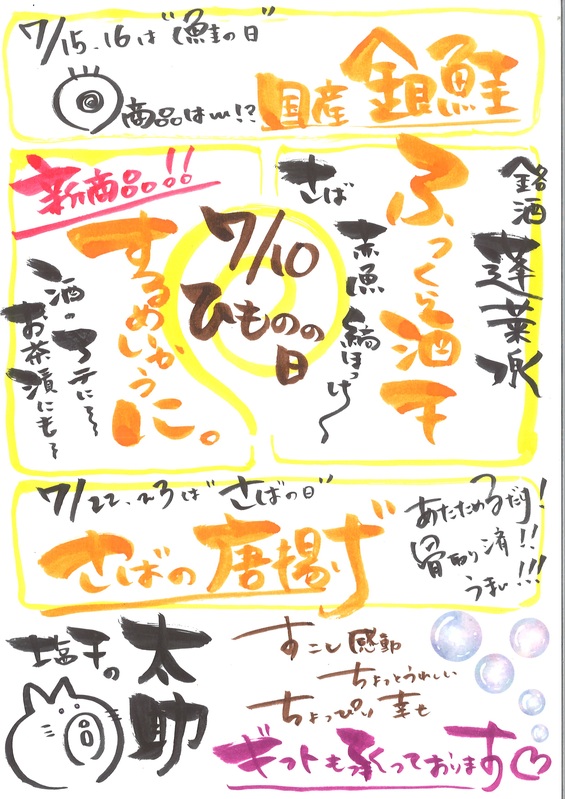 7/15.16は"鮭の日"
商品はw!?
国産 銀鮭
新商品!!
するめいかうに。
酒のアテに〜
お茶漬にも〜
7/10
ひものの
日
銘酒 蓬莱泉
ふっくら酒干
さば
赤魚 縞ほっけ〜
7/22.23は"さばの日"
さばの唐揚げ
あたためるだけ!
骨取り済!!
うまい!!!
塩干の
太助
すこし感動
ちょっとうれしい
ちょっぴり幸せ
ギフトも承っております